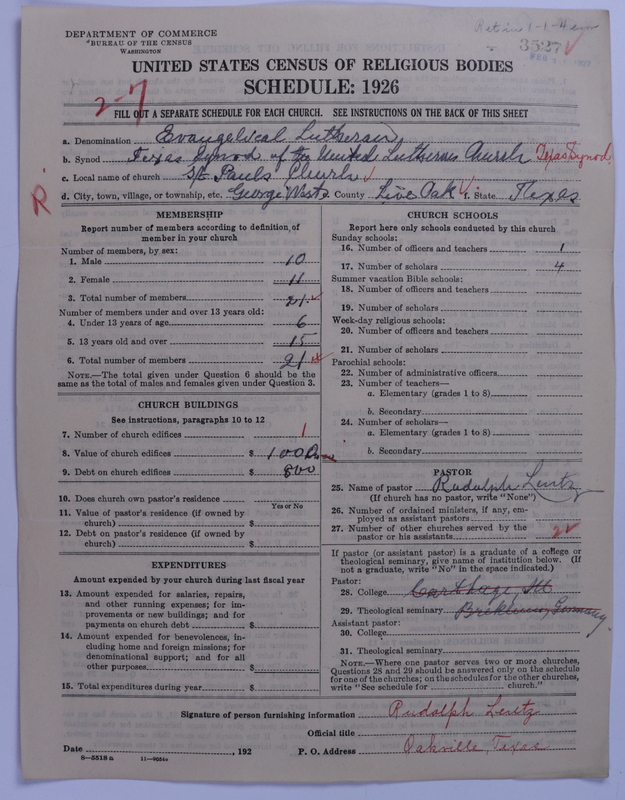 DEPARTMENT OF COMMERCE
BUREAU OF THE CENSUS
WASHINGTON
3527
UNITED STATES CENSUS OF RELIGIOUS BODIES
SCHEDULE: 1926
2-7
FILL OUT A SEPARATE SCHEDULE FOR EACH CHURCH. SEE INSTRUCTIONS ON THE BACK OF THIS SHEET
a. Denomination Evangelical Lutheran
b. Synod Texas Synod of the United Lutheran Church Texas Synod.
c. Local name of church St Pauls Church
d. City, town, village, or township, etc. George West e. County Live Oak f. State Texas
R.
MEMBERSHIP
Report number of members according to definition of member in your church
Number of members, by sex:
1. Male 10
2. Female 11
3. Total number of members 21
Number of members under and over 13 years old:
4. Under 13 years of age 6
5. 13 years old and over 15
6. Total number of members 21
NOTE.—The total given under Question 6 should be the
same as the total of males and females given under Question 3.
CHURCH BUILDINGS
See instructions, paragraphs 10 to 12
7. Number of church edifices 1
8. Value of church edifices $ 1000
9. Debt on church edifices $ 800
10. Does church own pastor's residence
Yes or No
11. Value of pastor's residence (if owned by
church) $
12. Debt on pastor's residence (if owned by
church) $
EXPENDITURES
Amount expended by your church during last fiscal year
13. Amount expended for salaries, repairs,
and other running expenses; for im-
provements or new buildings; and for
payments on church debt $
14. Amount expended for benevolences, in-
cluding home and foreign missions; for
denominational support; and for all
other purposes $
15. Total expenditures during year $
CHURCH SCHOOLS
Report here only schools conducted by this church
Sunday schools:
16. Number of officers and teachers 1
17. Number of scholars 4
Summer vacation Bible schools:
18. Number of officers and teachers
19. Number of scholars
Week-day religious schools:
20. Number of officers and teachers
21. Number of scholars
Parochial schools:
22. Number of administrative officers
23. Number of teachers—
a. Elementary (grades 1 to 8)
b. Secondary
24. Number of scholars—
a. Elementary (grades 1 to 8)
b. Secondary
PASTOR
25. Name of pastor Rudolph Lentz
(If church has no pastor, write "None")
26. Number of ordained ministers, if any, em-
ployed as assistant pastors
27. Number of other churches served by the
pastor or his assistants 2
If pastor (or assistant pastor) is a graduate of a college or
theological seminary, give name of institution below. (If
not a graduate, write "No" in the space indicated.)
Pastor:
28. College Carthage, Ill
29. Theological seminary Breklum, Germany
Assistant pastor:
30. College
31. Theological seminary
NOTE.—Where one pastor serves two or more churches,
Questions 28 and 29 should be answered only on the schedule
for one of the churches; on the schedules for the other churches,
write "See schedule for church."
Signature of person furnishing information Rudolph Lentz
Official title
Date , 192 P. O. Address Oakville, Texas
8—5518 a 11—9054